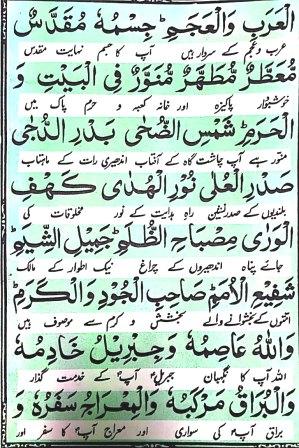 الْعَرَبِ وَالْعَجَمِ جِسْمُهٗ مُقَدَّسٌ
عرب وعجم کے سردار ہیں آپ کا جسم نہایت مقدس
مُّعَطَّرٌ مُّطَهَّرٌ مُّنَوَّرٌ فِي الْبَيْتِ وَ
خوشبودار پاکیزہ اور خانہ کعبہ و حرم پاک میں
الْحَرَمِ شَمْسِ الضُّحٰى بَدْرِ الدُّجٰى
منور ہے آپ چاشت گاہ کے آفتاب اندھیری رات کے ماہتاب
صَدْرِ الْعُلٰى نُوْرِ الْهُدٰى كَهْفِ
بلندیوں کے صدر نشین راہ ہدایت کے نور مخلوقات کی
الْوَرٰى مِصْبَاحِ الظُّلَمِ جَمِيْلِ الشِّيَمِ
جائے پناہ اندھیروں کے چراغ نیک اطوار کے مالک
شَفِيْعِ الْاُمَمِ صَاحِبِ الْجُوْدِ وَالْكَرَمِ
امتوں کے بخشوانے والے بخشش و کرم سے موصوف ہیں
وَاللّٰهُ عَاصِمُهٗ وَجِبْرِيْلُ خَادِمُهٗ
اللہ آپ کا نگہبان جبریل آپ کے خدمت گذار
وَالْبُرَاقُ مَرْكَبُهٗ وَالْمِعْرَاجُ سَفَرُهٗ وَ
براق آپ کی سواری اور معراج آپ کا سفر اور